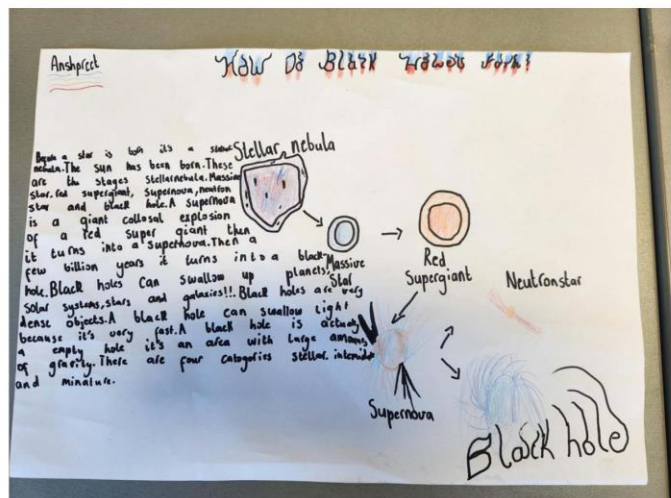 Anshpreet
How Do Black Holes Form?
Before a star is born it's a stellar
nebula. The sun has been born. These
are the stages stellarnebula. Massive
star, red supergiant, supernova, neutron
star and black hole. A supernova
is a giant collosal explosion
of a red super giant then
it turns into a supernova. Then a
few billion years it turns into a black
hole. Black holes can swallow up planets,
solar systems, stars and galaxies!!! Black holes are very
dense objects. A black hole can swallow light
because it's very fast. A black hole is actualy
a empty hole it's an area with large amounts
of gravity. There are four catogories stellar,
and minature.
Stellar nebula
Massive
Star
Red
Supergiant
Neutronstar
Supernova
Black hole